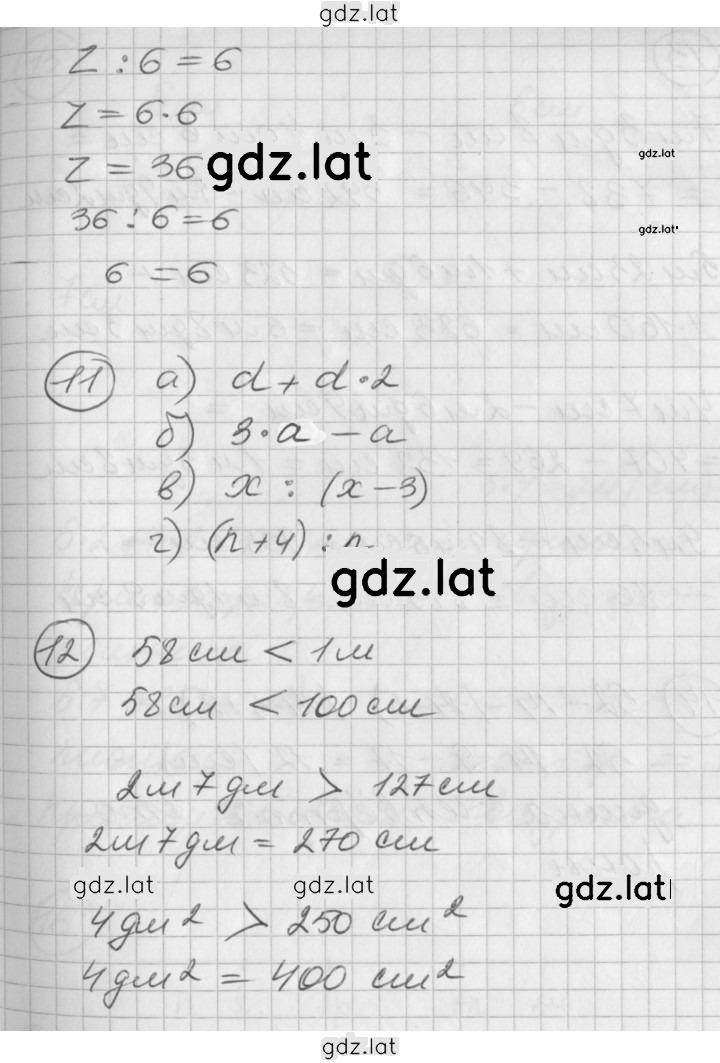 gdz.lat
z : 6 = 6
z = 6·6
z = 36
gdz.lat
gdz.lat
36 : 6 = 6
gdz.lat
6 = 6
11 а) d + d·2
б) 3·a − a
в) x : (x − 3)
г) (n + 4) : n
gdz.lat
12 58 см < 1 м
58 см < 100 см
2 м 7 дм > 127 см
2 м 7 дм = 270 см
gdz.lat gdz.lat gdz.lat
4 дм² > 250 см²
4 дм² = 400 см²
gdz.lat